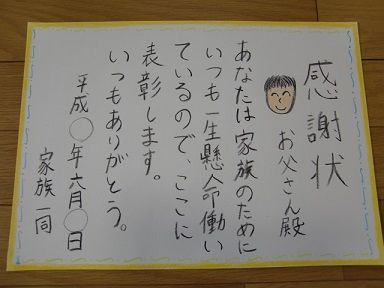 感謝状
お父さん殿
あなたは家族のために
いつも一生懸命働い
ているので、ここに
表彰します。
いつもありがとう。
平成〇年六月〇日
家族一同